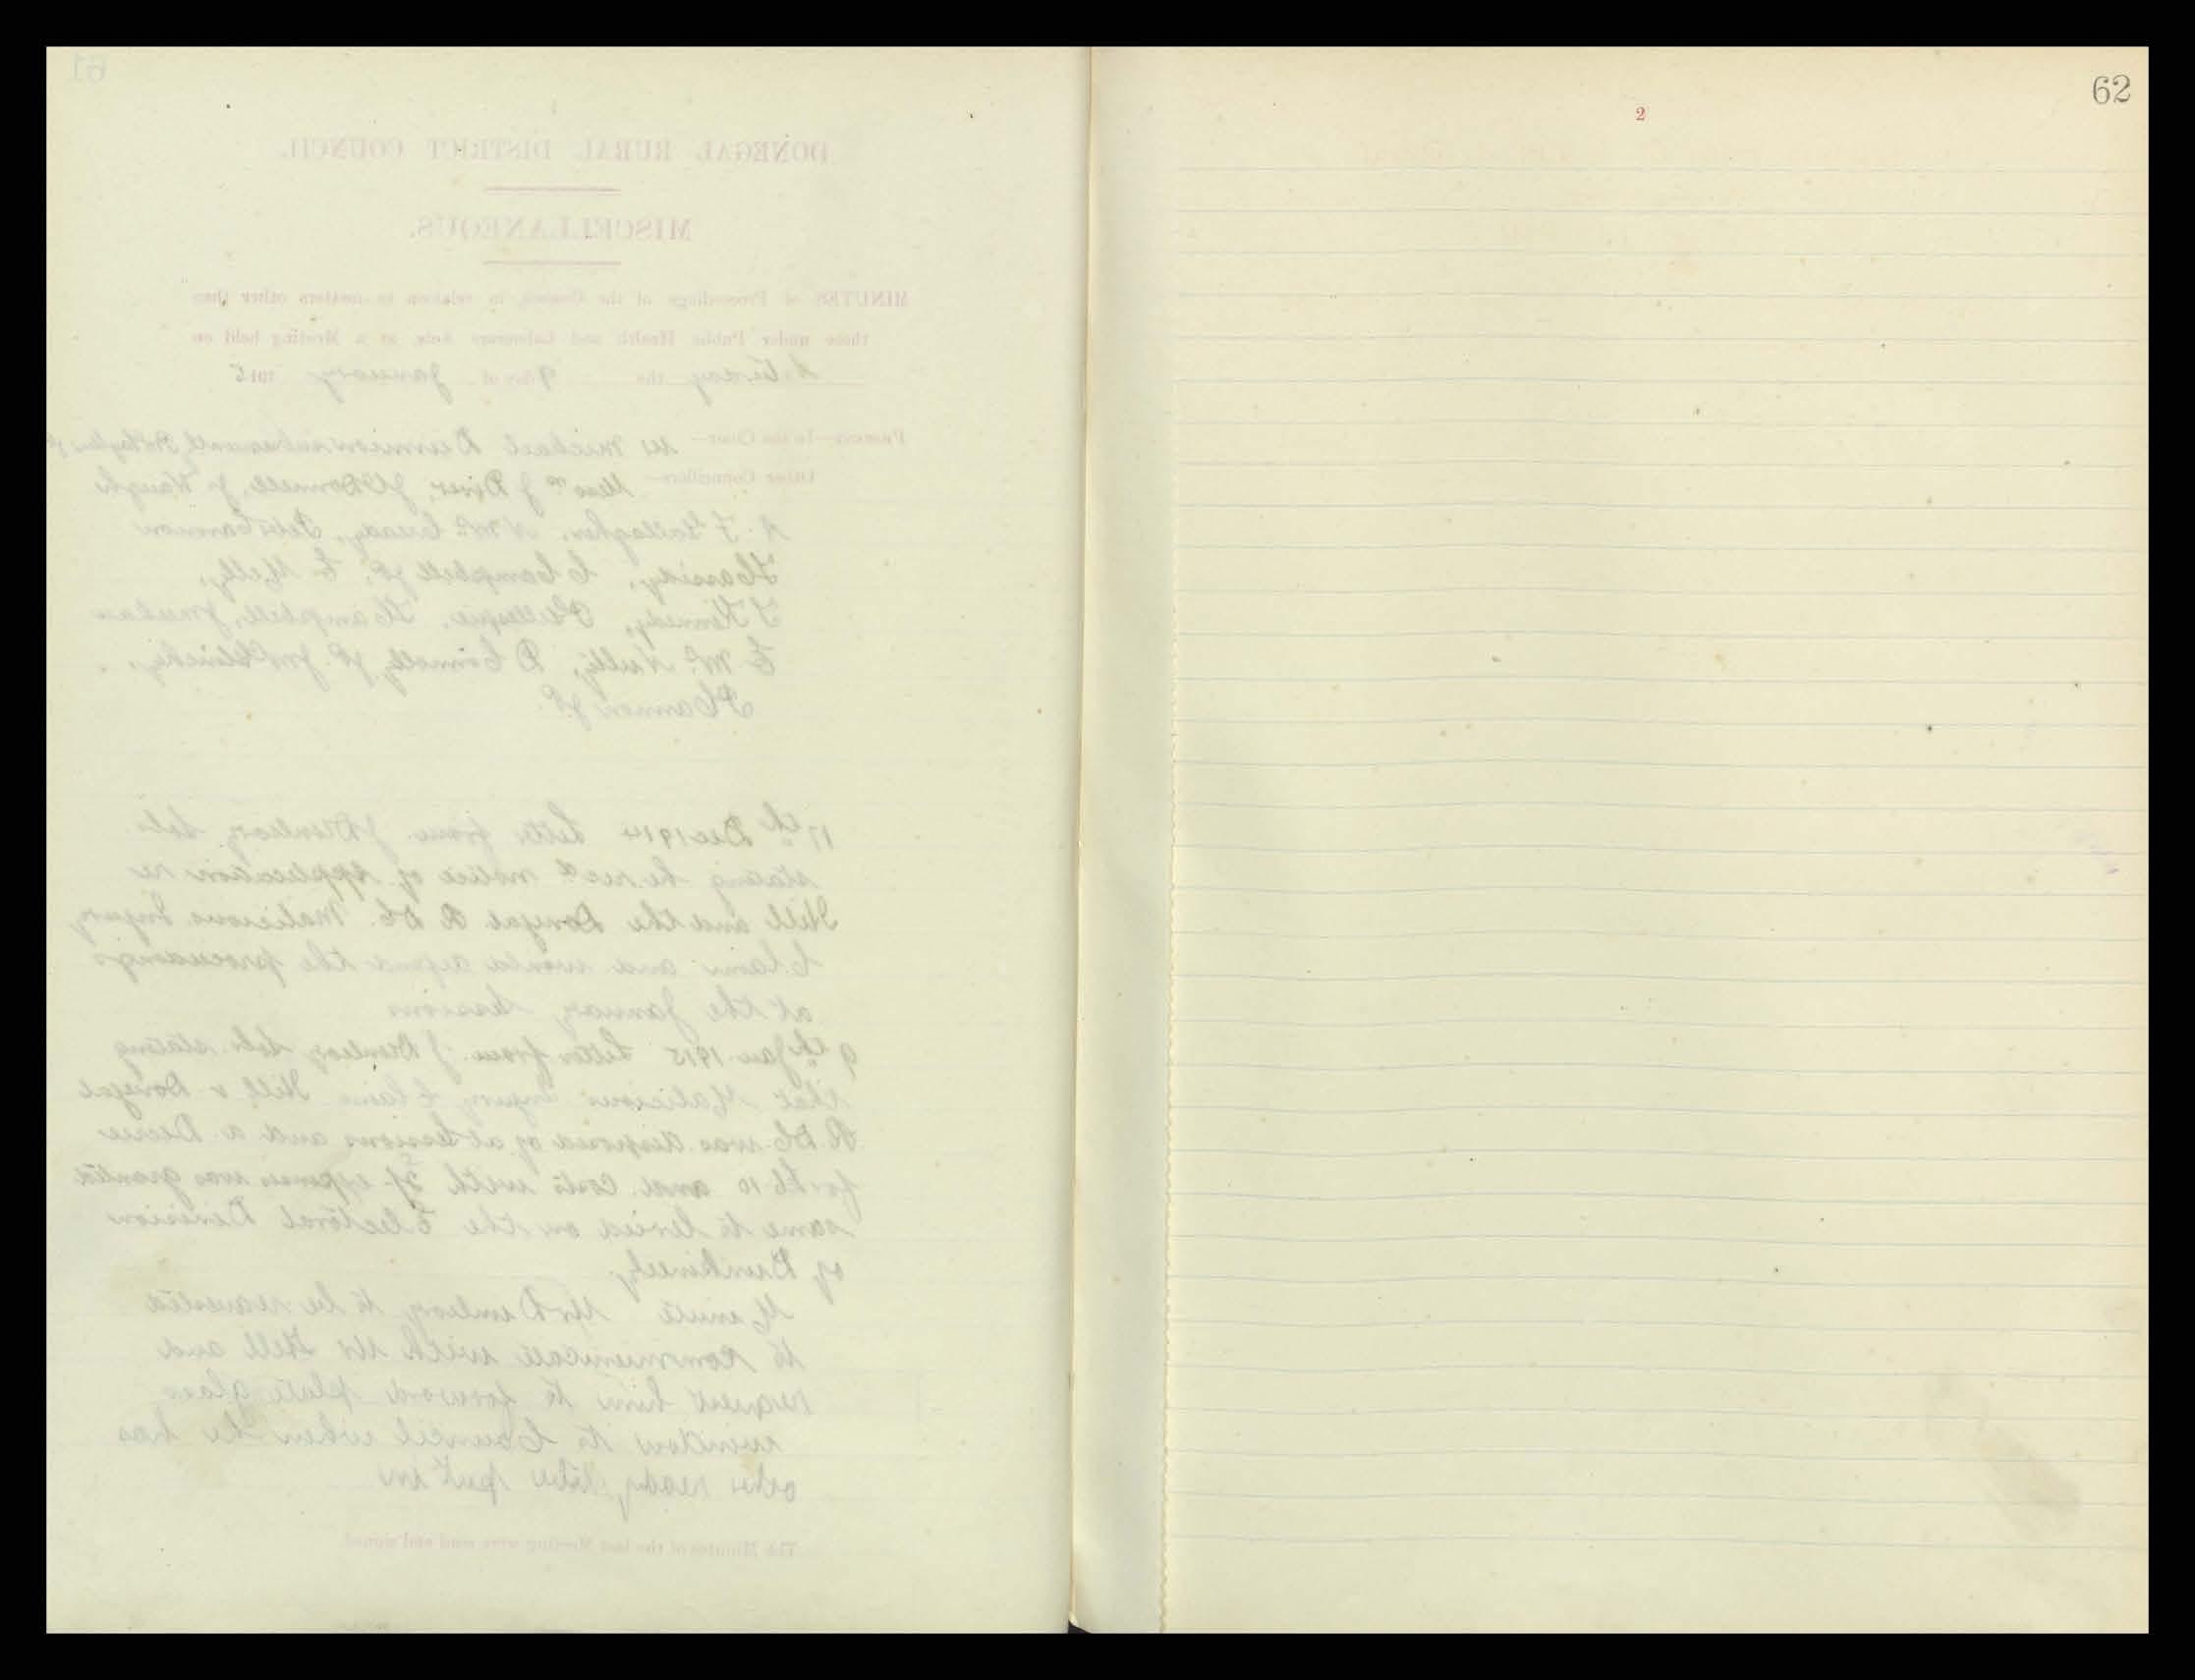 61
DONEGAL RURAL DISTRICT COUNCIL.
MISCELLANEOUS.
MINUTES of Proceedings of the Council, in relation to matters other than
those under Public Health and Labourers Acts, at a Meeting held on
the 9 day of January 1915
Present—In the Chair— Mr Michael
Other Councillors— Messrs J Diver, J O'Donnell, J Haughi
Gallagher, Cannon
Cassidy, C Campbell JP, E Melly,
T Kennedy, Gillespie, Campbell,
E McNulty, P Connolly JP,
P Cannon JP
17th Dec 1914 Letter from J Dunlevy Solr
stating he recd notice of application re
Hill and the Donegal R D C. Malicious Injury
Claim and would defend the proceedings
at the January Sessions
9th Jan 1915 Letter from J Dunlevy Solr stating
that Malicious Injury Claim Hill v Donegal
R D C. was disposed of at Sessions and a Decree
for £6 10 and costs with expenses was granted
same to levied on the Electoral Division
of Dunkineely
Minute Mr Dunlevy to be requested
to communicate with Mr Hill and
request him to forward plate glass
window to Council when he has
other ready put in
The Minutes of the last Meeting were read and signed.
62
2